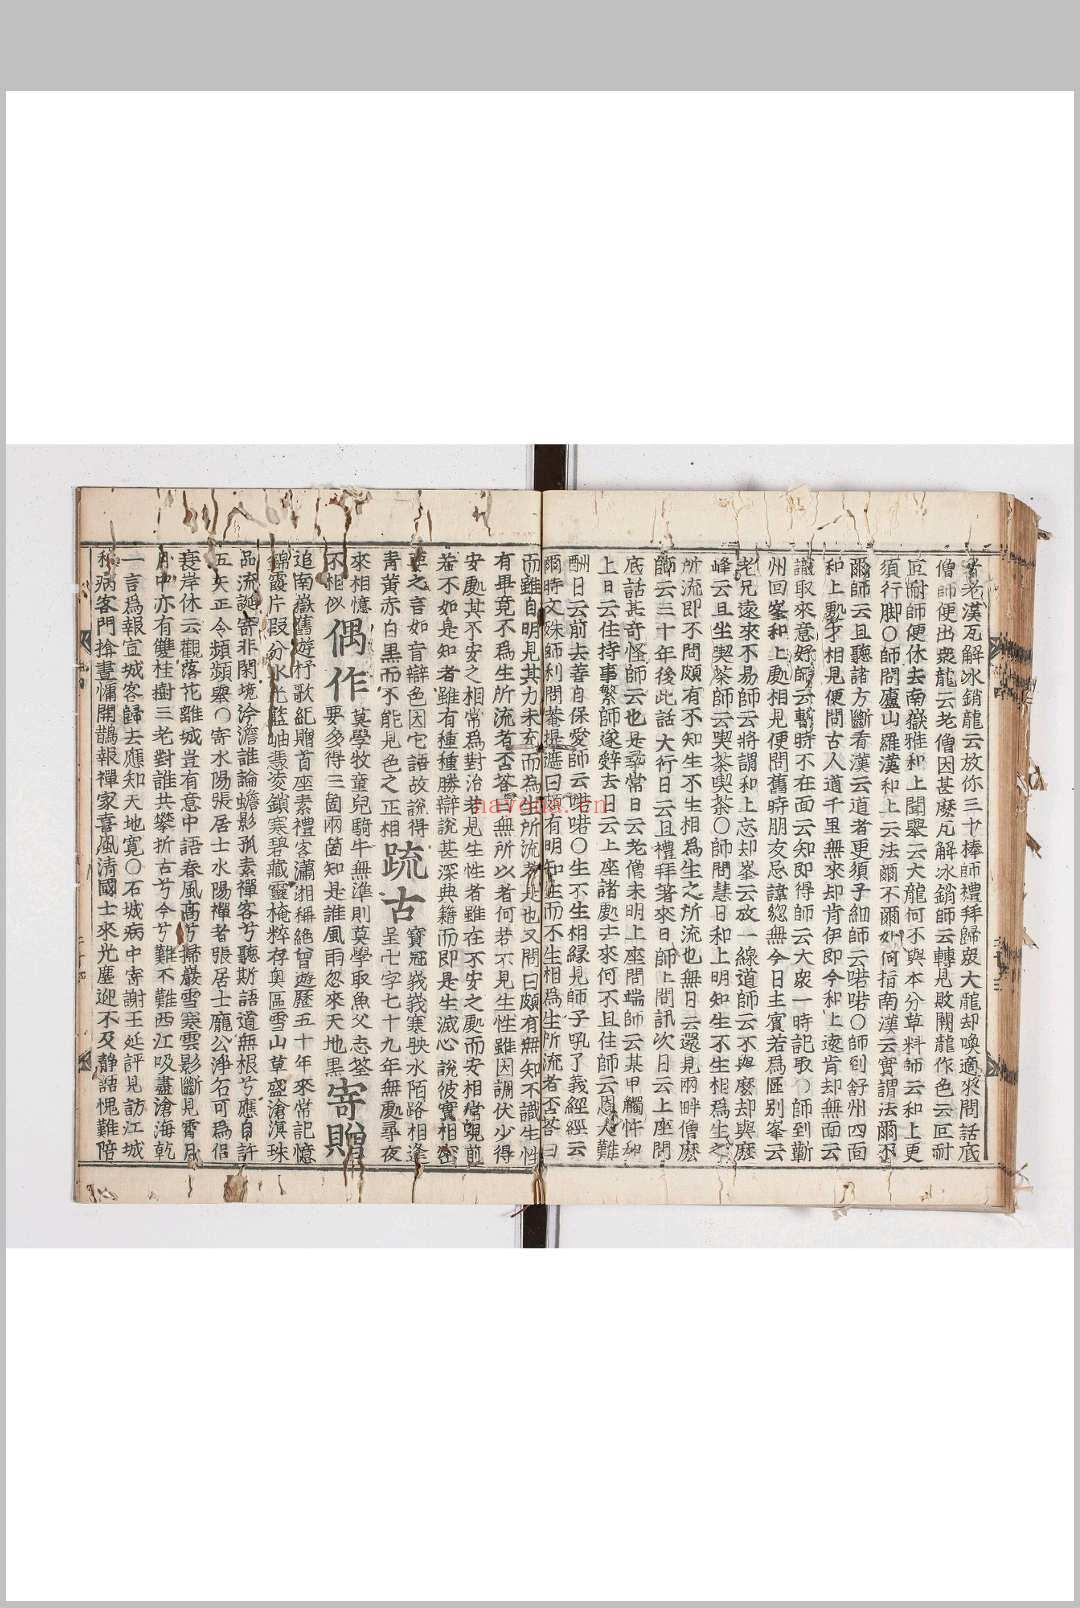 者老漢瓦解冰銷龍云放你三十棒師禮拜歸衆大龍却喚適來問話底
僧師便出衆龍云老僧因甚麽瓦解冰銷師云轉見敗闕龍作色云叵耐
叵耐師便休去南嶽雅和上聞舉云大龍何不與本分草料師云和上更
須行脚〇師問廬山羅漢和上云法爾不爾如何指南漢云實謂法爾不
爾師云且聽諸方斷看漢云道者更須子細師云喏喏〇師到舒州四面
和上處才相見便問古人道千里無來却肯伊即今和上遠肯却無面云
識取來意好師云暫時不在面云知即得師云大衆一時記取〇師到蘄
州回峯和上處相見便問舊時朋友忌諱揔無今日主賓若為區别峯云
老兄遠來不易師云將謂和上忘却峯云放一線道師云不與麽却與麽
峰云且坐喫茶師云喫茶喫茶〇師問慧日和上明知生不生相爲生之
所流即不問頗有不知生不生相爲生之所流也無日云還見兩畔僧麽
師云三十年後此話大行日云且禮拜著來日師上問訊次日云上座問
底話甚奇怪師云也是尋常日云老僧未明上座問端師云某甲觸忤和
上日云住持事繁師遂辞去日云上座諸處去來何不且住師云恩大難
酬日云前去善自保愛師云喏喏〇生不生相緣見師子吼了義經經云
爾時文殊師利問菴提遮曰頗有明知生而不生相爲生所流者不荅曰
有雖自明見其力未充而為生所流者是也又問曰頗有無知不識生性
有畢竟不爲生所流者否荅曰無所以者何若不見生性雖因調伏少得
安處其不安之相常爲對治若見生性者雖在不安之處而安相常現前
若不如是知者雖有種種勝辯説甚深典籍而即是生滅心説彼實相密
要之言如盲辯色因它語故説得
青黄赤白黒而不能見色之正相 疏古 寶冠峩峩寒映水陌路相逢
呈七字七十九年無處尋夜
來相憶
不相似 偶作 莫學牧童兒騎牛無準則莫學取魚父忘筌
要多得三箇兩箇知是誰風雨忽來天地黒 寄贈
追南嶽舊遊杼歌紀贈首座素禮客瀟湘稱絶曾遊歴五十年來常記憶
錦霞片段分水光藍岫㵎淩鎖寒碧藏靈掩粹存奥區雪山草盛滄溟珠
品流誕寄非閑境泠澹誰論蟾影孤素禪客兮聽斯語道無根兮應自許
五矢正令頻頻舉〇寄水陽張居士水陽禪者張居士龐公淨名可爲侣
長岸休云觀落花離城豈有意中語春風高兮掃巖雪寒雲影斷見霄月
月中亦有雙桂樹三老對誰共攀折古兮今兮難不難西江吸盡滄海乾
一言爲報宣城客歸去應知天地寛〇石城病中寄謝王延評見訪江城
秋病客門掩晝慵開鵲報禪家喜風清國士來光塵迎不及静話愧難陪